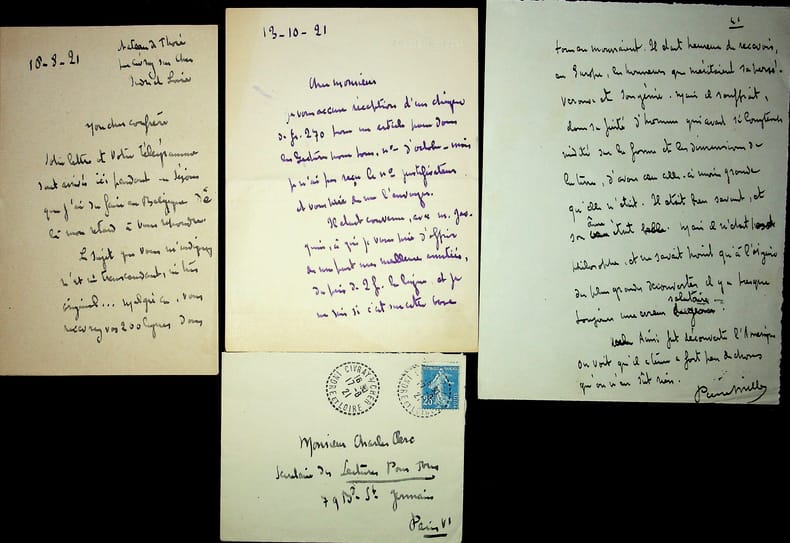 18-8-21
Mon cher confrère
Votre lettre et votre télégramme
sont arrivés ici pendant un séjour
que j'ai du faire en Belgique. De là
mon retard à vous répondre.
Le sujet que vous m'indiquez
n'est ni transcendant, ni très
original... malgré ça, vous
recevrez vos 200 lignes dans
13-10-21
Cher monsieur
je vous accuse réception d'un chèque
de fr. 270 pour un article paru dans
les Lectures pour tous, n° d'octobre - mais
je n'ai pas reçu le n° justificateur
et vous prie de me l'envoyer.
Il était convenu, avec M. Jac-
quin, à qui je vous prie d'offrir
de ma part mes meilleures amitiés,
du prix de 2 f. la ligne. et je
ne sais si c'est sur cette base
ton au mourant. Il était heureux de recevoir,
en Europe, les honneurs que méritaient sa persé-
vérance et son génie. Mais il souffrait,
dans sa fierté d'homme qui avait si
sur la forme et les dimensions de
la terre, d'avoir cru celle-ci moins grande
qu'elle n'était. Il était bien savant, et
son âme était belle. Mais il n'était pas
philosophe, et ne savait point qu'à l'origine
des plus grandes découvertes il y a presque
toujours une erreur salutaire.
Ainsi fut découverte l'Amérique
On voit qu'il a tenu à fort peu de choses
qu'on n'en sût rien.
Pierre Mille
CIVRAY S/CHER
INDRE ET LOIRE
17-8
21
25
Monsieur Charles Clerc
Secrétaire des Lectures Pour Tous
79 Bd St Germain
Paris VI